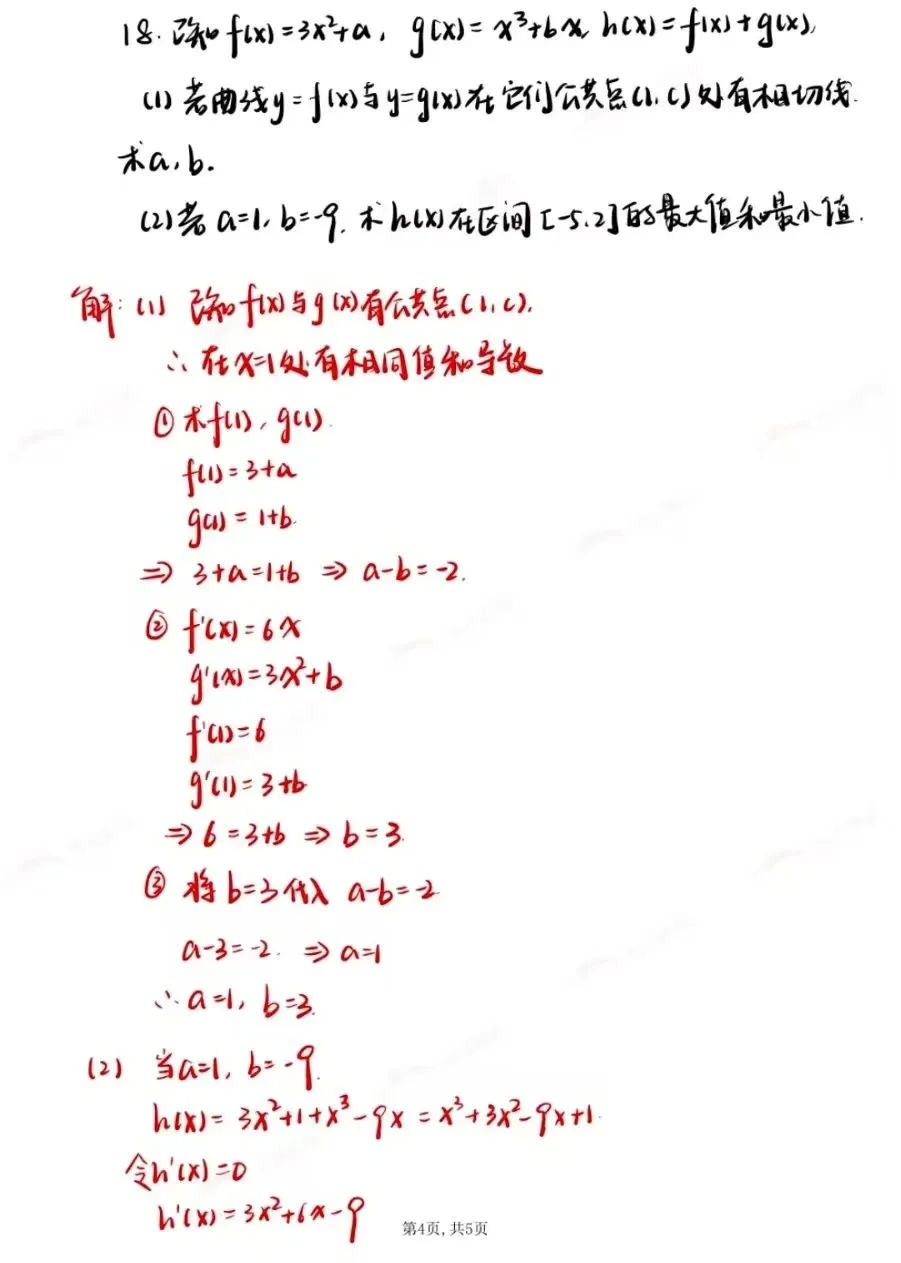 18. 已知f(x)=3x²+a, g(x)=x³+bx, h(x)=f(x)+g(x),
(1) 若曲线y=f(x)与y=g(x)在它们公共点(1,c)处有相切线.
求a,b.
(2)若a=1,b=-9,求h(x)在区间[-5,2]的最大值和最小值.
解:(1) 已知f(x)与g(x)有公共点(1,c).
∴在x=1处有相同值和导数
① 求f(1), g(1).
f(1)=3+a
g(1)=1+b.
⇒ 3+a=1+b ⇒ a-b=-2.
② f'(x)=6x
g'(x)=3x²+b
f'(1)=6
g'(1)=3+b
⇒ 6=3+b ⇒ b=3.
③ 将b=3代入 a-b=-2
a-3=-2. ⇒ a=1
∴a=1, b=3.
(2) 当a=1, b=-9.
h(x)=3x²+1+x³-9x=x³+3x²-9x+1.
令h'(x)=0
h'(x)=3x²+6x-9
第4页,共5页